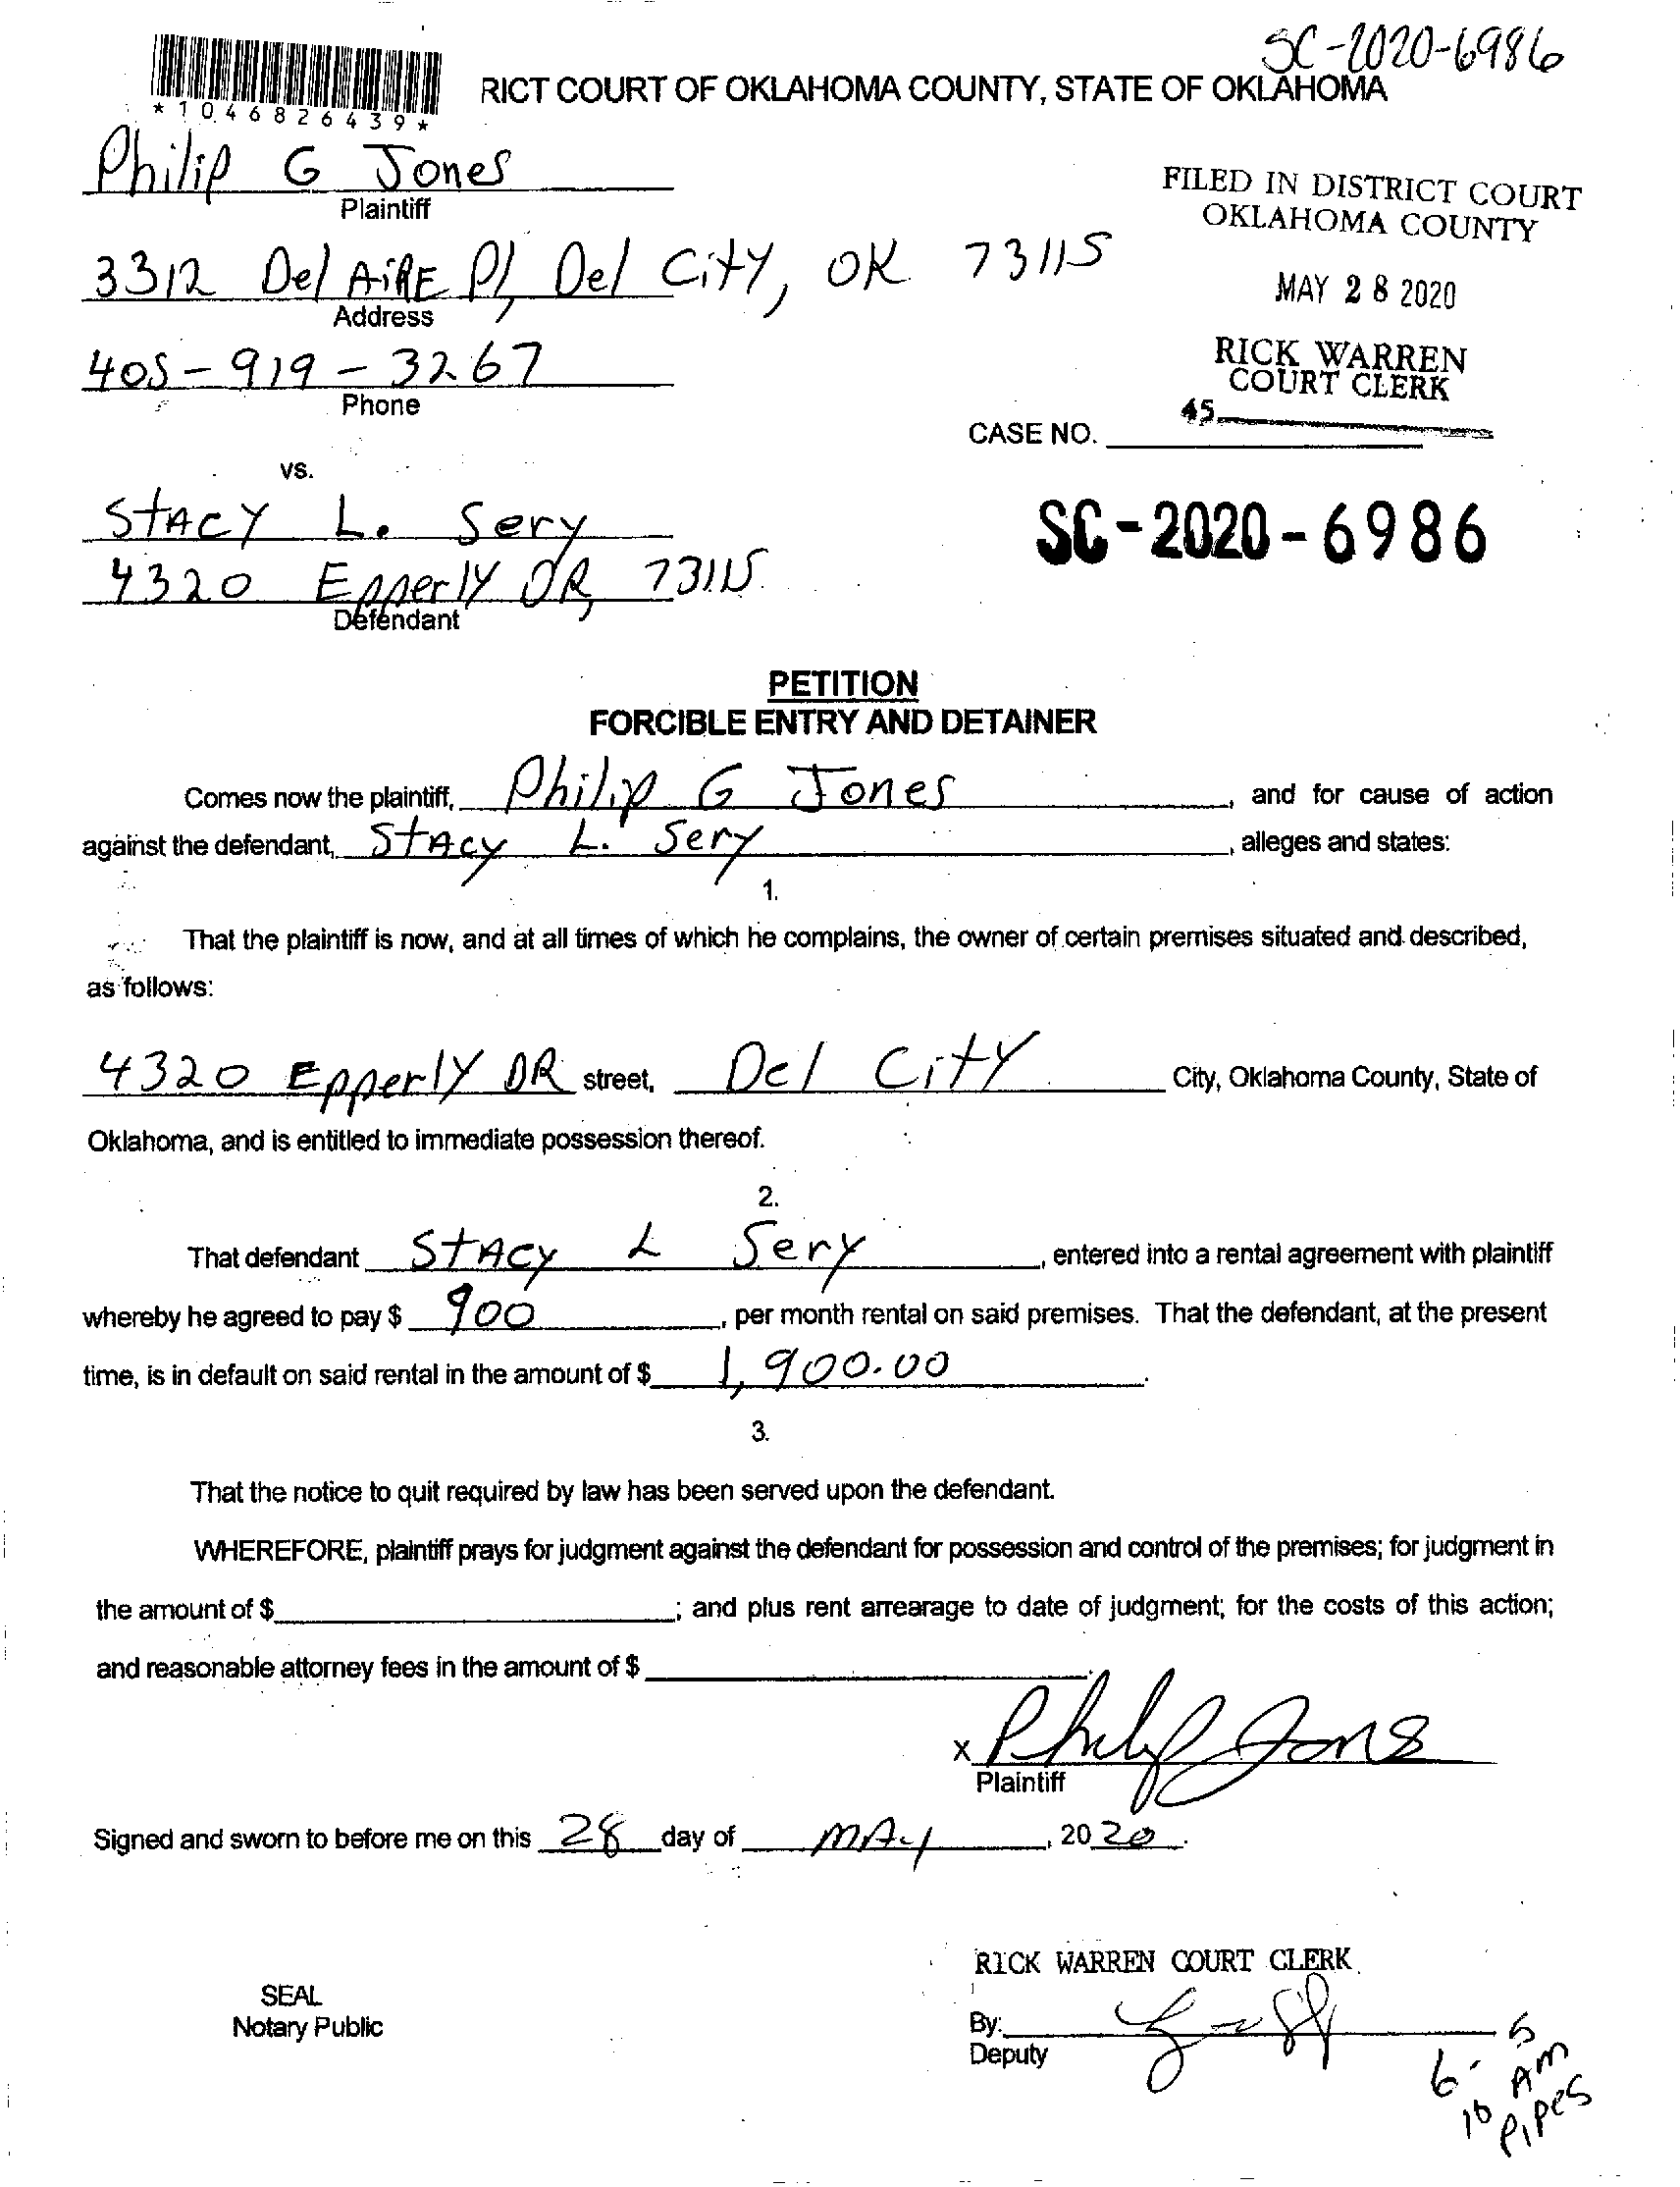 SC-2020-6986
*1046826439*
RICT COURT OF OKLAHOMA COUNTY, STATE OF OKLAHOMA
Philip G Jones
Plaintiff
FILED IN DISTRICT COURT
OKLAHOMA COUNTY
3312 Del AiRE Pl, Del City, OK 73115
Address
MAY 28 2020
405-919-3267
Phone
RICK WARREN
COURT CLERK
45
CASE NO.
vs.
STACY L. Sery
SC-2020-6986
4320 Epperly DR, 73115
Defendant
PETITION
FORCIBLE ENTRY AND DETAINER
Comes now the plaintiff, Philip G Jones, and for cause of action
against the defendant, STACY L. Sery, alleges and states:
1.
That the plaintiff is now, and at all times of which he complains, the owner of certain premises situated and described,
as follows:
4320 Epperly DR street, Del City City, Oklahoma County, State of
Oklahoma, and is entitled to immediate possession thereof.
2.
That defendant STACY L Sery, entered into a rental agreement with plaintiff
whereby he agreed to pay $ 900, per month rental on said premises. That the defendant, at the present
time, is in default on said rental in the amount of $ 1,900.00.
3.
That the notice to quit required by law has been served upon the defendant.
WHEREFORE, plaintiff prays for judgment against the defendant for possession and control of the premises; for judgment in
the amount of $; and plus rent arrearage to date of judgment; for the costs of this action;
and reasonable attorney fees in the amount of $.
x Philip Jones
Plaintiff
Signed and sworn to before me on this 28 day of MAy, 2020.
RICK WARREN COURT CLERK
SEAL
Notary Public
By:
Deputy
6-5
10 AM
Pipes